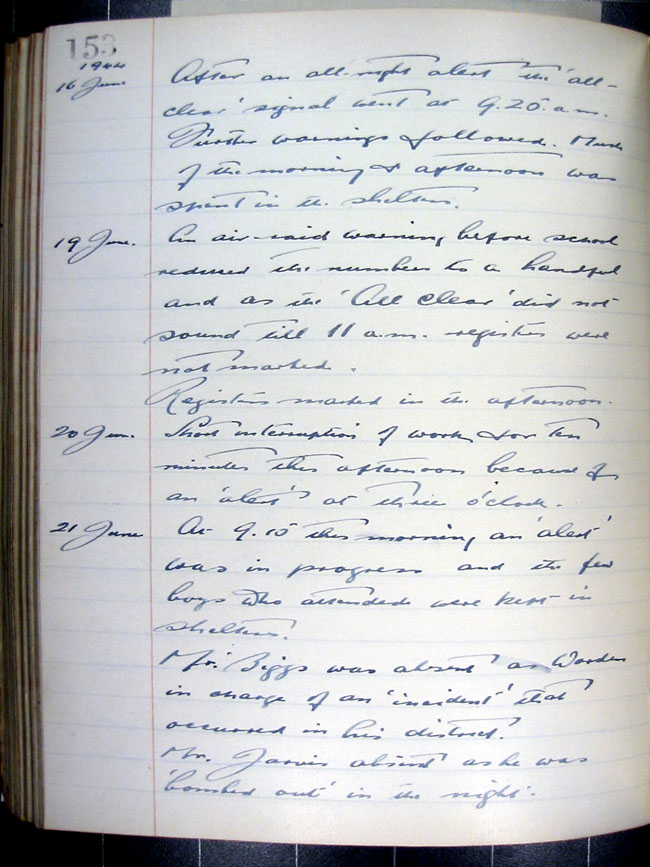 153
1944
16 June After an all-night alert the 'all-
clear' signal went at 9.20 a.m.
Further warnings followed. Much
of the morning & afternoon was
spent in the shelters.
19 June. An air-raid warning before school
reduced the number to a handful
and as the 'All Clear' did not
sound till 11 a.m. registers were
not marked.
Registers marked in the afternoon.
20 Jun. Short interruption of work for ten
minutes this afternoon because of
an 'alert' at three o'clock.
21 June At 9.10 this morning an 'alert'
was in progress and the few
boys who attended were kept in
shelters.
Mr. Biggs was absent as Warden
in charge of an 'incident' that
occurred in his district.
Mr. Jarvis absent as he was
'bombed out' in the night.